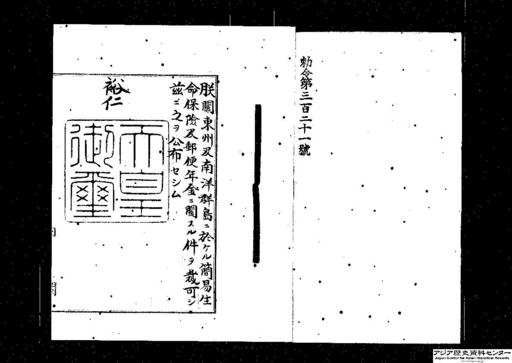 勅令第三百二十一號
朕關東州及南洋群島ニ於ケル簡易生
命保險及郵便年金ニ關スル件ヲ裁可シ
茲ニ之ヲ公布セシム
裕仁
天皇
御璽
内
閣
アジア歴史資料センター
Japan Center for Asian Historical Records